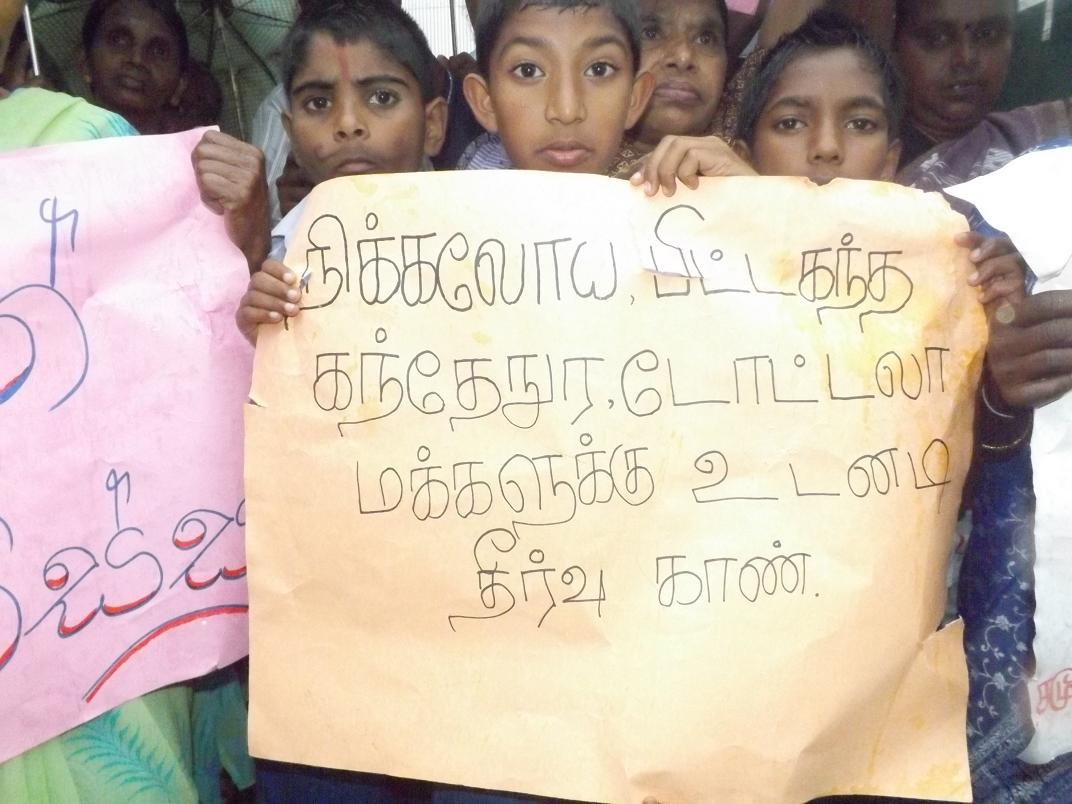 நிக்கலோய, பிட்டகந்த
கந்தேநுர, டோட்டலா
மக்களுக்கு உடனடி
தீர்வு காண்.